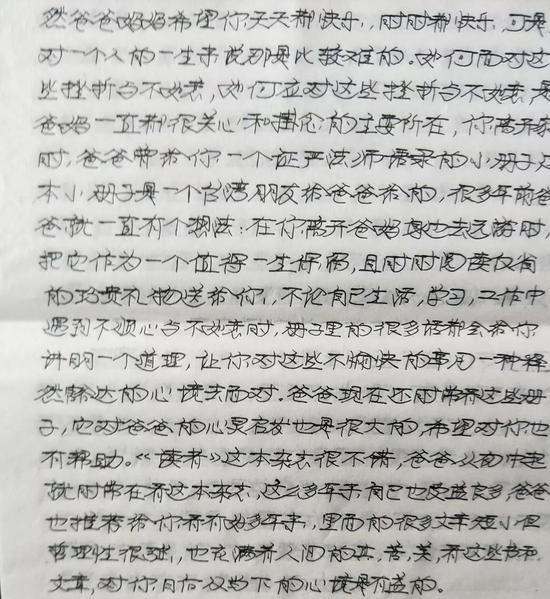 然爸爸妈妈希望你天天都快乐，时时都快乐，可是
对一个人的一生来说那是比较难的。如何面对这
些挫折与不如意，如何应对这些挫折与不如意，是
爸妈一直都很关心和挂念的主要所在，你离开家
时，爸爸带给你一个证严法师语录的小册子，这
本小册子是一个台湾朋友给爸爸给的，很多年前爸
爸就一直有个想法：在你离开爸妈身边去远游时，
把它作为一个值得一生保留，且时时阅读反省
的珍贵礼物送给你，不论自己生活，学习，工作中
遇到不顺心与不如意时，册子里的很多话都会给你
讲明一个道理，让你对这些不愉快的事用一种释
然豁达的心境去面对。爸爸现在还时常看这些册
子，它对爸爸的心灵启发也是很大的，希望对你也
有帮助。《读者》这本杂志很不错，爸爸从初中起
就时常在看这本杂志，这么多年来自己也受益良多，爸爸
也推荐给你看你好多年来，里面的很多文章短小但
哲理性很强，也充满着人间的真、善、美，看这些书和
文章，对你目前 下的心境是有益的。